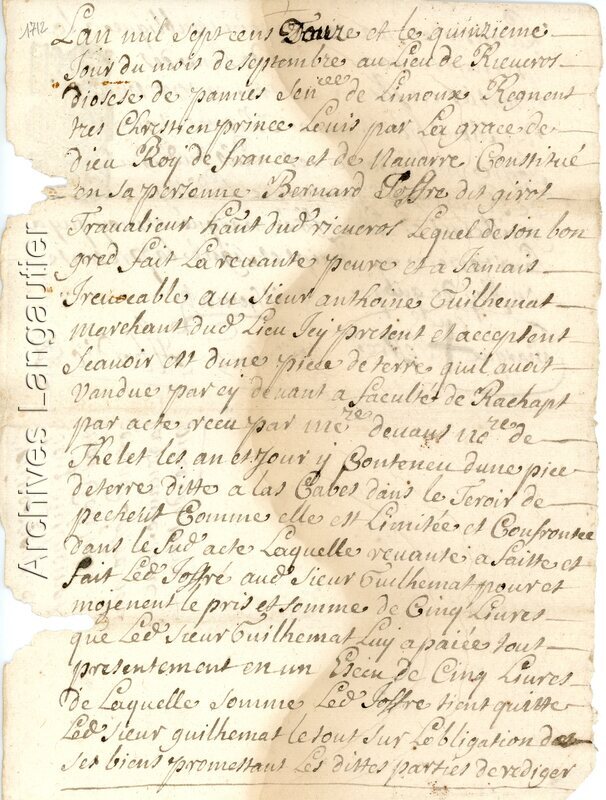 1712
Lan mil sept cens Douze et le quinzieme
Jour du mois de septembre au Lieu de Rieucros
diosese de pamies sen^cee de Limoux Regnent
tres Chrestien prince Louis par La grace de
dieu Roy de france et de Nauarre Constitué
en sa personne Bernard Joffre dit giros
Traualieur hant dud rieucros Lequel de son bon
gred fait La reuante peure et a Jamais
Jreuocable au sieur anthoine Guilhemat
marchant dud Lieu Jcy present et acceptent
scauoir est dune piece de terre quil auoit
Vandue par cy deuant a faculte de Rachapt
par acte receu par me deuant no^re de
Thelet les an et Jour y Conteneu dune piece
de terre ditte a las Cabes dans le Teroir de
pechent Comme elle est Limitée et Confrontée
dans le sud acte Laquelle reuante a faitte et
fait Led Joffré aud sieur Guilhemat pour et
mojenent le pris et somme de Cinq Liures
que Led sieur Guilhemat Luy a paiée tout
presentement en un Escu de Cinq Liures
de Laquelle somme Led Joffre tient quitte
Led sieur guilhemat le tout sur Lobligation de
ses biens promettant Les dittes parties de rediger
Archives Langautier